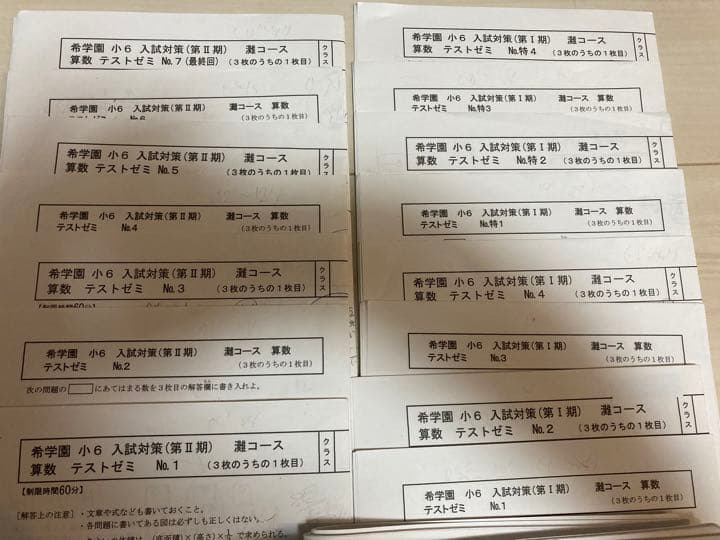 希学園 小6 入試対策(第Ⅱ期) 灘コース
算数 テストゼミ No.7(最終回) (3枚のうちの1枚目)
クラス
希学園 小6 入試対策(第Ⅱ期) 灘コース 算数
テストゼミ No.6 (3枚のうちの1枚目)
希学園 小6 入試対策(第Ⅱ期) 灘コース
算数 テストゼミ No.5 (3枚のうちの1枚目)
クラス
希学園 小6 入試対策(第Ⅱ期) 灘コース 算数
テストゼミ No.4 (3枚のうちの1枚目)
希学園 小6 入試対策(第Ⅱ期) 灘コース
算数 テストゼミ No.3 (3枚のうちの1枚目)
クラス
【制限時間60分】
希学園 小6 入試対策(第Ⅱ期) 灘コース 算数
テストゼミ No.2 (3枚のうちの1枚目)
次の問題の□にあてはまる数を3枚目の解答欄に書き入れよ。
希学園 小6 入試対策(第Ⅱ期) 灘コース
算数 テストゼミ No.1 (3枚のうちの1枚目)
クラス
【制限時間60分】
[解答上の注意] ・文章や式なども書いておくこと。
・各問題に書いてある図は必ずしも正しくはない。
(底面積)×(高さ)×1/3 で求められる。
希学園 小6 入試対策(第Ⅰ期) 灘コース
算数 テストゼミ No.特4 (3枚のうちの1枚目)
クラス
希学園 小6 入試対策(第Ⅰ期) 灘コース 算数
テストゼミ No.特3 (3枚のうちの1枚目)
希学園 小6 入試対策(第Ⅰ期) 灘コース
算数 テストゼミ No.特2 (3枚のうちの1枚目)
クラス
希学園 小6 入試対策(第Ⅰ期) 灘コース 算数
テストゼミ No.特1 (3枚のうちの1枚目)
希学園 小6 入試対策(第Ⅰ期) 灘コース
算数 テストゼミ No.4 (3枚のうちの1枚目)
クラス
希学園 小6 入試対策(第Ⅰ期) 灘コース 算数
テストゼミ No.3 (3枚のうちの1枚目)
希学園 小6 入試対策(第Ⅰ期) 灘コース
算数 テストゼミ No.2 (3枚のうちの1枚目)
クラス
希学園 小6 入試対策(第Ⅰ期) 灘コース 算数
テストゼミ No.1 (3枚のうちの1枚目)